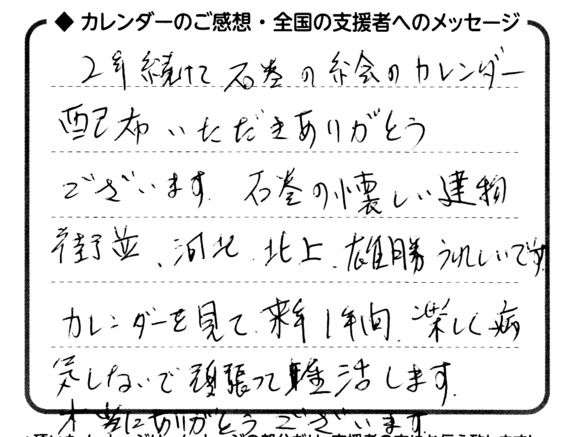 ◆ カレンダーのご感想・全国の支援者へのメッセージ
2年続けて石巻の絵のカレンダー
配布いただきありがとう
ございます。石巻の懐しい建物
街並、河北、北上、雄勝うれしいです
カレンダーを見て、来年1年間、楽しく病
気しないで頑張って生活します。
本当にありがとうございます